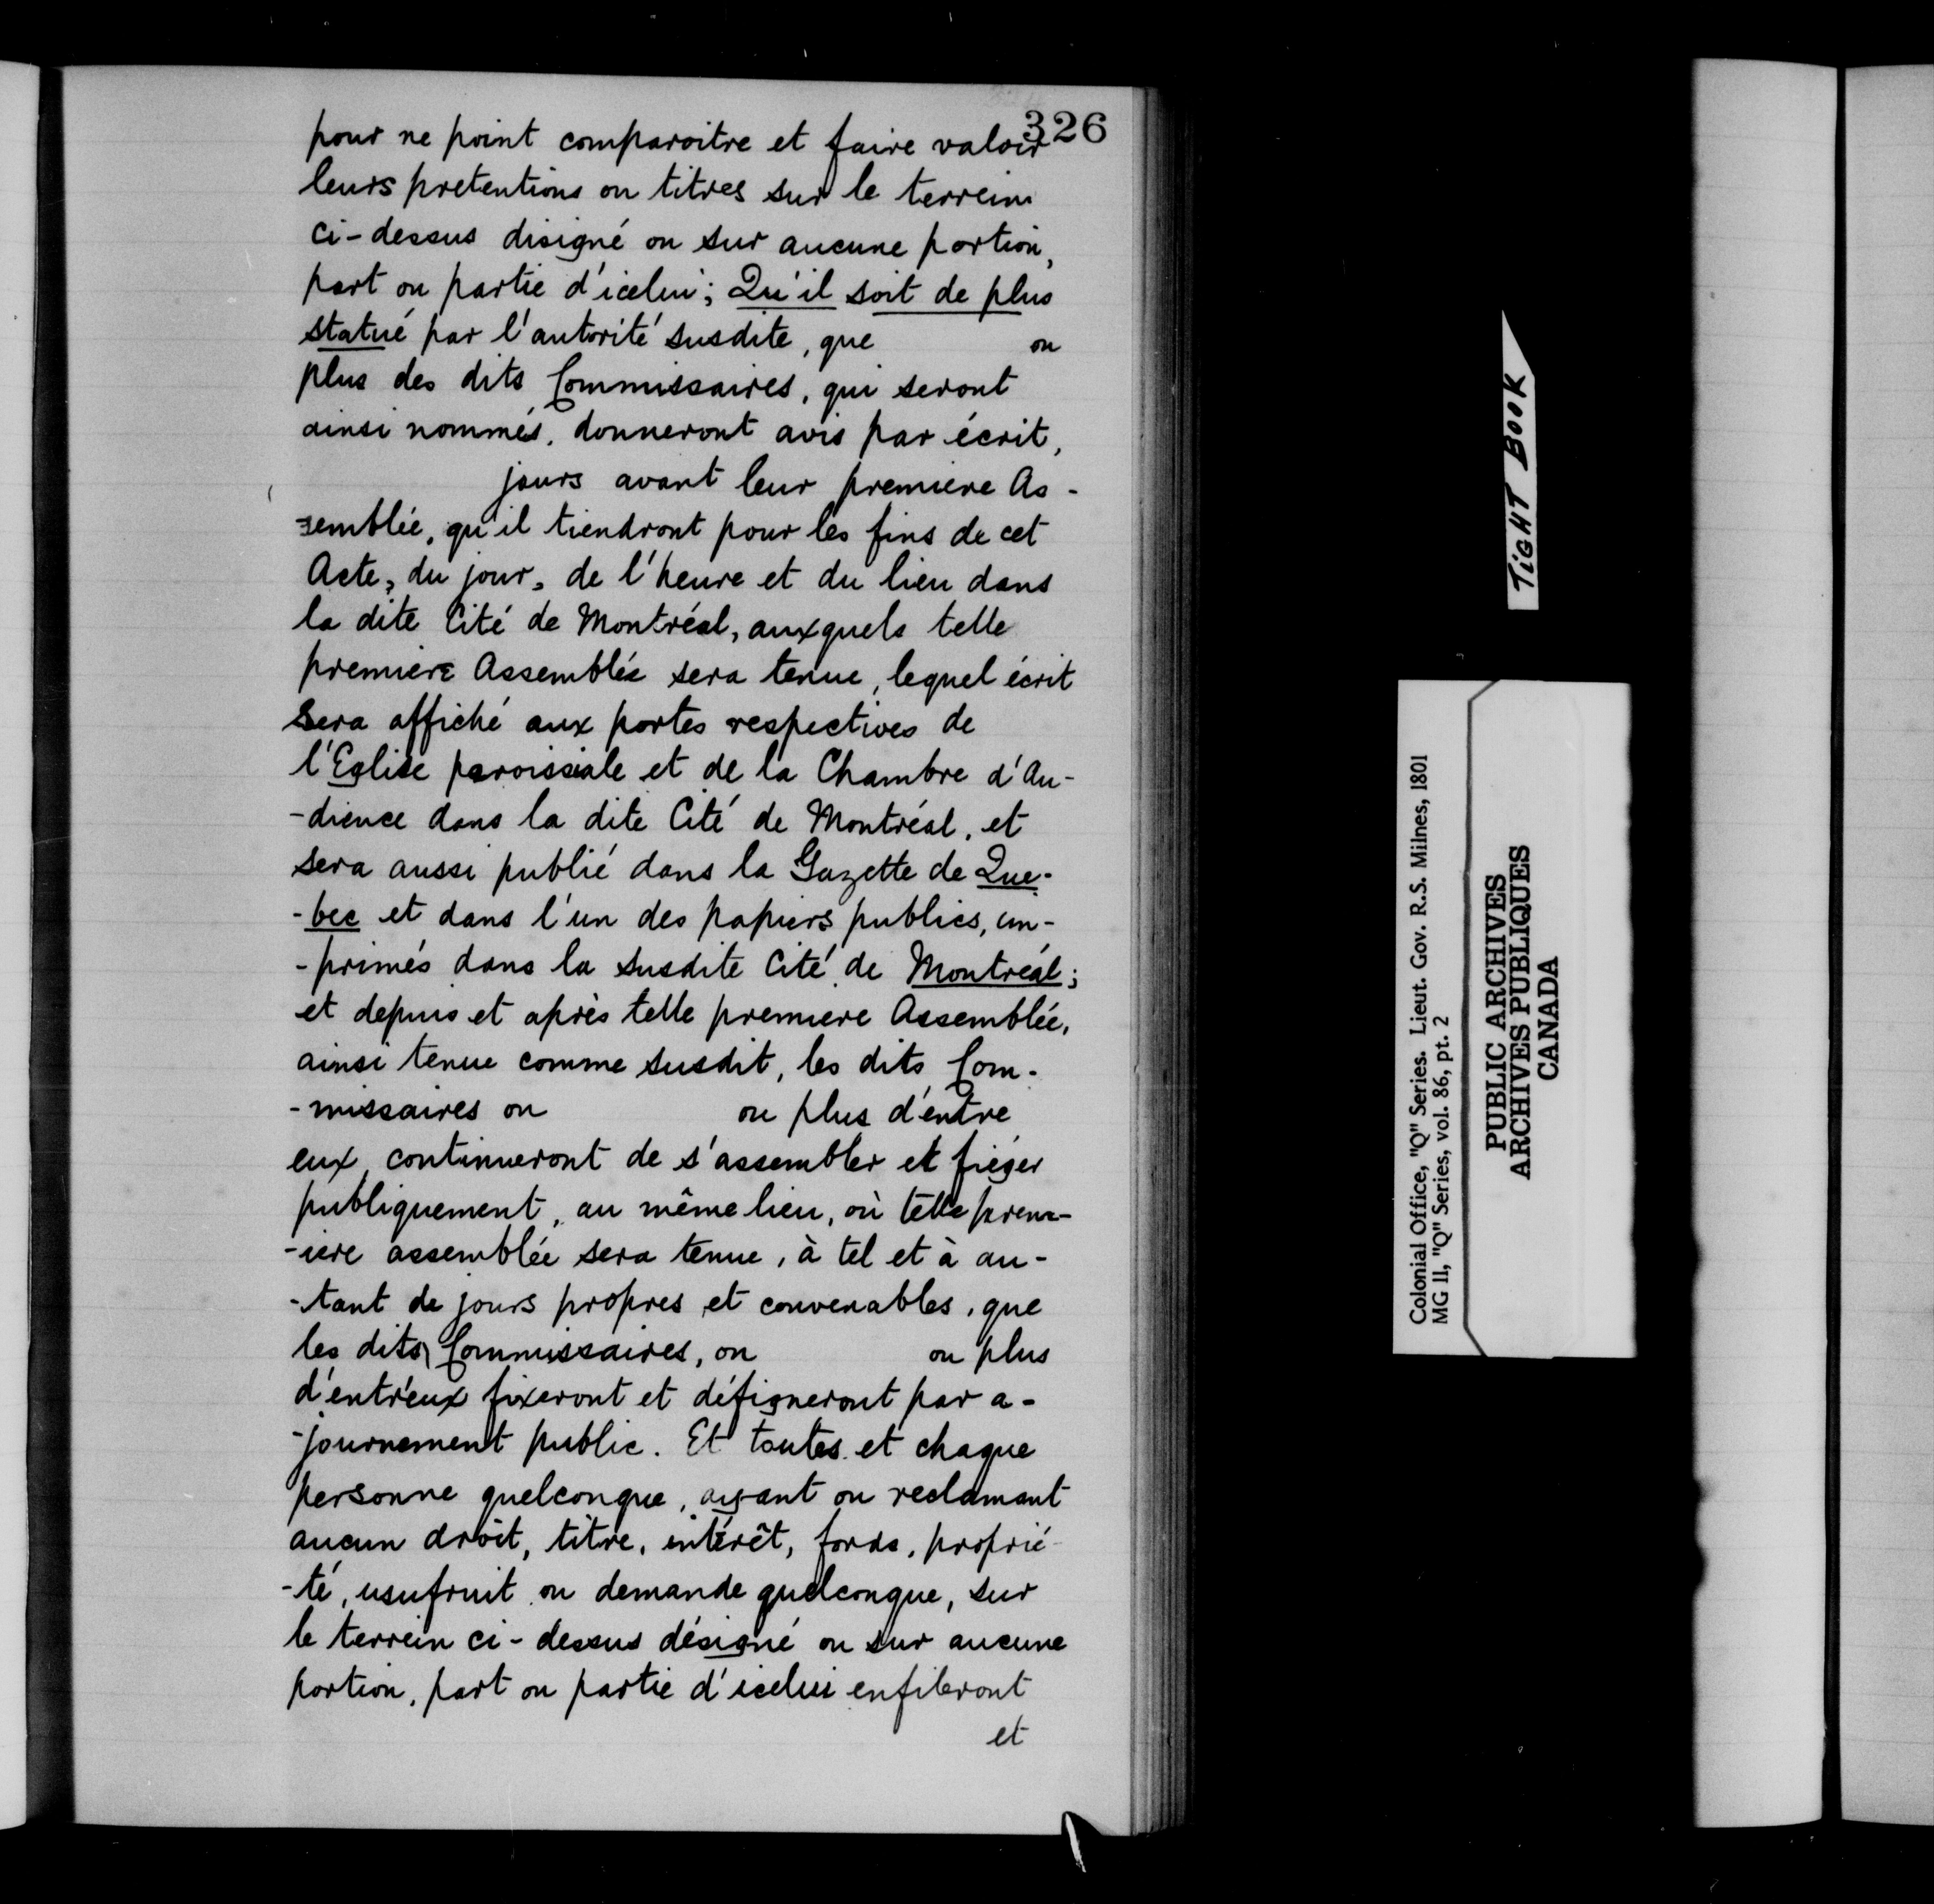 326
pour ne point comparoitre et faire valoir
leurs pretentions ou titres sur le terrein
ci-dessus disigné ou sur aucune portion,
part ou partie d'icelui; Qu'il soit de plus
statué par l'autorité susdite, que ou
plus des dits Commissaires, qui seront
ainsi nommés, donneront avis par écrit,
jours avant leur premiere As-
-semblée, qu'il tiendront pour les fins de cet
Acte, du jour, de l'heure et du lieu dans
la dite Cité de Montréal, auxquels telle
premiere Assemblée sera tenue, lequel écrit
sera affiché aux portes respectives de
l'Eglise paroissiale et de la Chambre d'Au-
-dience dans la dite Cité de Montréal, et
sera aussi publié dans la Gazette de Que-
-bec et dans l'un des papiers publics, im-
-primés dans la susdite Cité de Montréal;
et depuis et après telle premiere Assemblée,
ainsi tenue comme susdit, les dits Com-
-missaires ou ou plus d'entre
eux, continueront de s'assembler et fiéger
publiquement, au même lieu, où telle prem-
-iere assemblée sera tenue, à tel et à au-
-tant de jours propres et convenables, que
les dits Commissaires, ou ou plus
d'entr'eux fixeront et défigneront par a-
-journement public. Et toutes et chaque
personne quelconque, ayant ou reclamant
aucun droit, titre, intérêt, fonds, proprié-
-té, usufruit ou demande quelconque, sur
le terrein ci-dessus désigné ou sur aucune
portion, part ou partie d'icelui enfileront
et
TIGHT BOOK
Colonial Office, "Q" Series. Lieut. Gov. R.S. Milnes, 1801
MG 11, "Q" Series, vol. 86, pt. 2
PUBLIC ARCHIVES
ARCHIVES PUBLIQUES
CANADA